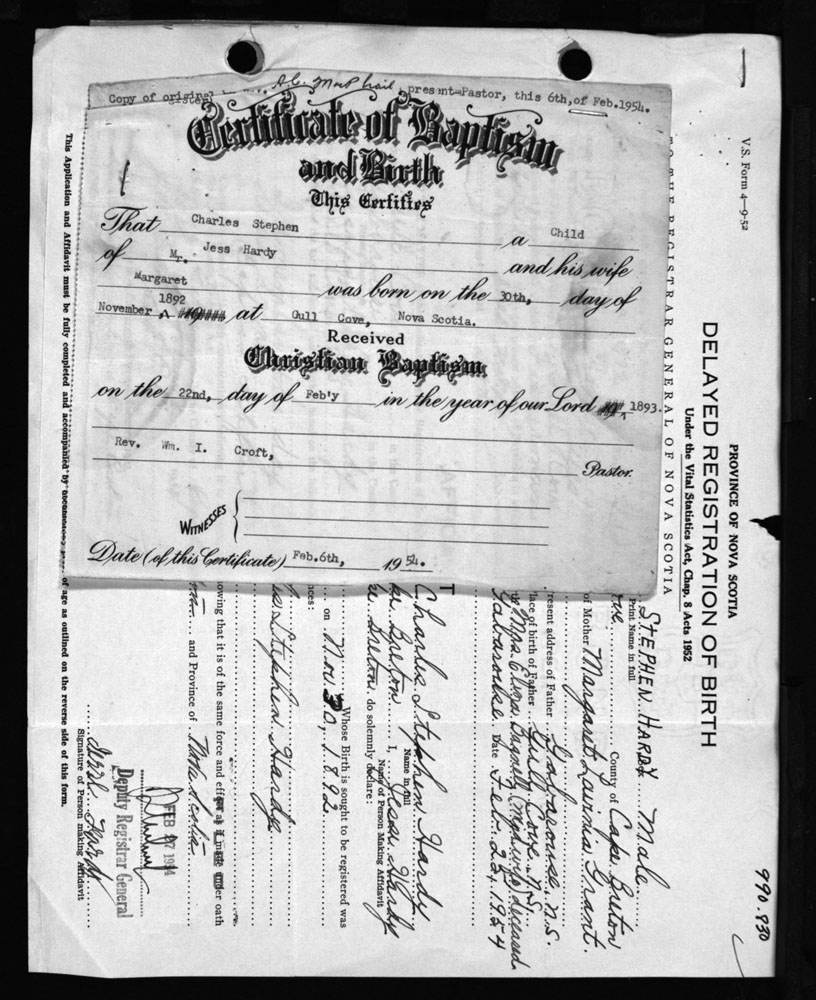 Copy of original
A.C. MacPhail
present=Pastor, this 6th, of Feb.1954.
Certificate of Baptism
and Birth
This Certifies
That Charles Stephen a Child
of Mr. Jess Hardy and his wife
Margaret was born on the 30th, day of
November 1892 at Gull Cove, Nova Scotia.
Received
Christian Baptism
on the 22nd, day of Feb'y in the year of our Lord 1893.
Rev. Wm. I. Croft,
Pastor.
WITNESSES
Date (of this Certificate) Feb.6th, 1954.
V.S. Form 4—9-52
990.830
PROVINCE OF NOVA SCOTIA
DELAYED REGISTRATION OF BIRTH
Under the Vital Statistics Act, Chap. 8 Acts 1952
TO THE REGISTRAR GENERAL OF NOVA SCOTIA
STEPHEN HARDY Male
Print Name in full
County of Cape Breton
of Mother Margaret Lavinia Grant.
resent address of Father Gabarouse N.S.
lace of birth of Father Gull Cove N.S.
Mrs. Eliza Bagnell (Midwife) deceased
Gabarouse Date Feb. 22, 1954
Charles Stephen Hardy
Name in full
Breton I, Jesse Hardy
Name of Person Making Affidavit
Breton do solemnly declare:
Whose Birth is sought to be registered was
on Nov 30, 1892
nces:
Stephen Hardy
owing that it is of the same force and effect as if made under oath
and Province of Nova Scotia
FEB 27 1954
Deputy Registrar General
Signature of Person making Affidavit
This Application and Affidavit must be fully completed and accompanied by of age as outlined on the reverse side of this form.